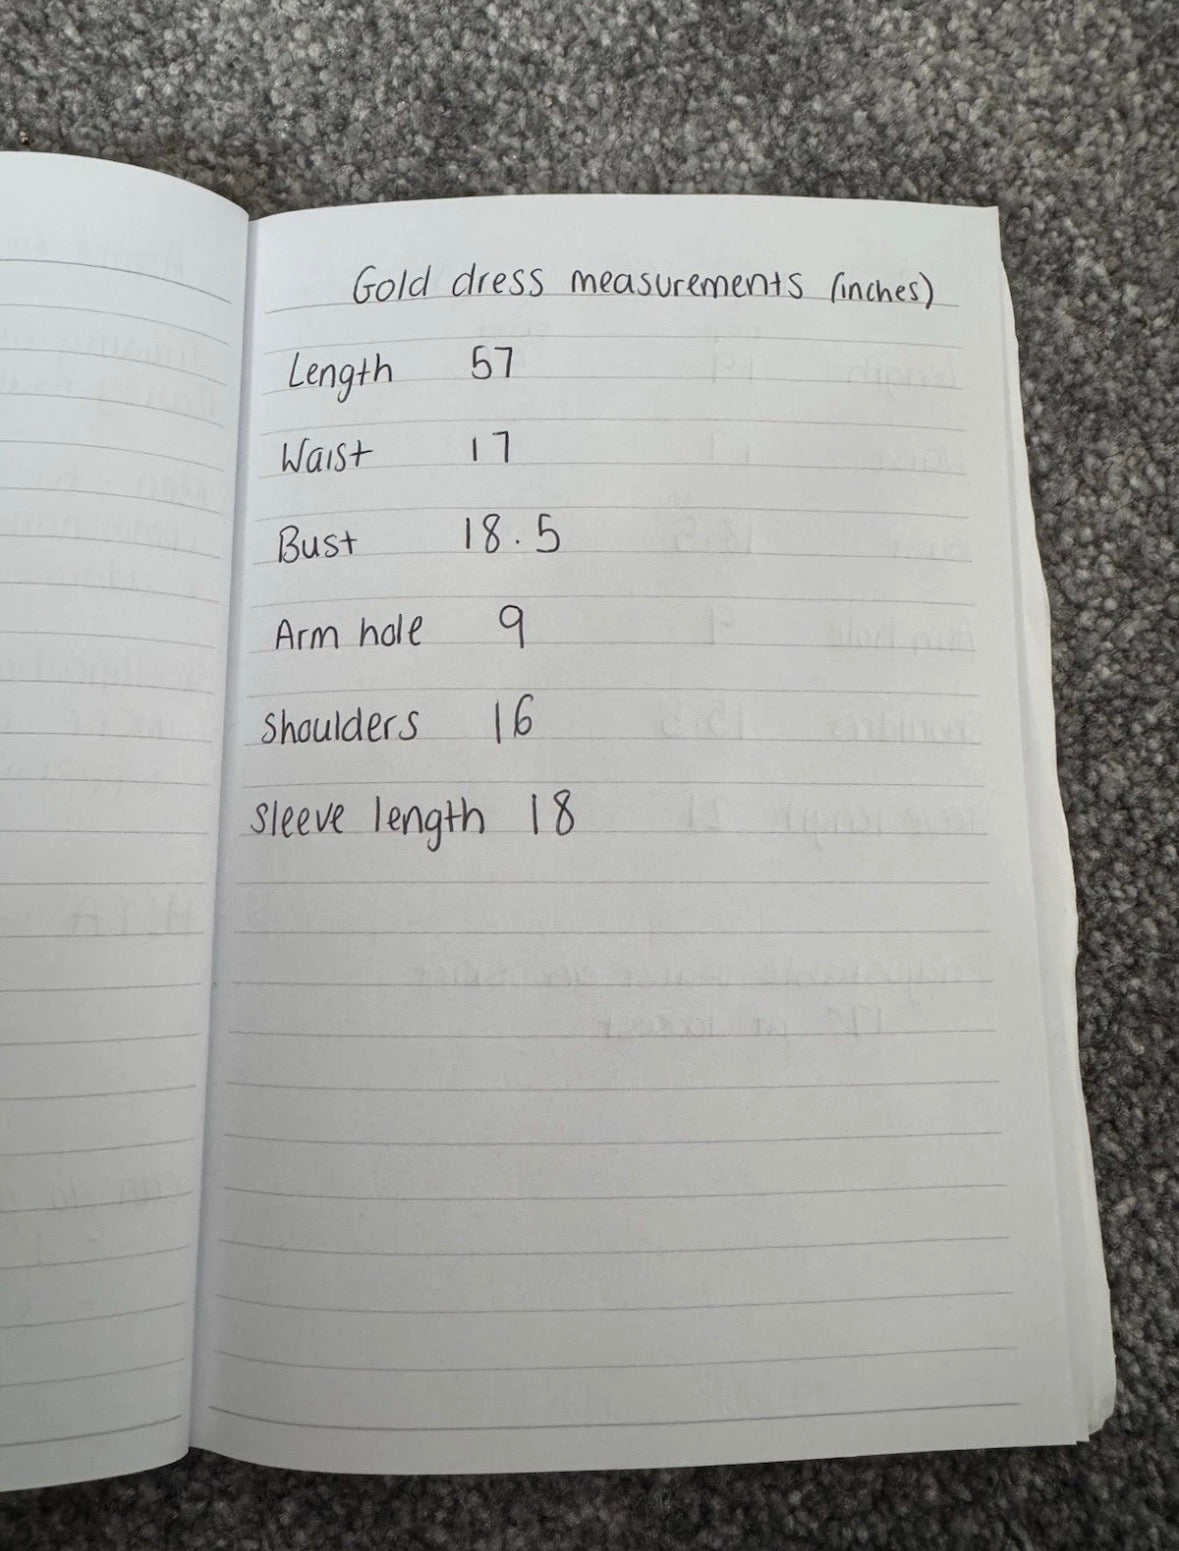 Gold dress measurements (inches)
Length 57
Waist 17
Bust 18.5
Arm hole 9
Shoulders 16
Sleeve length 18